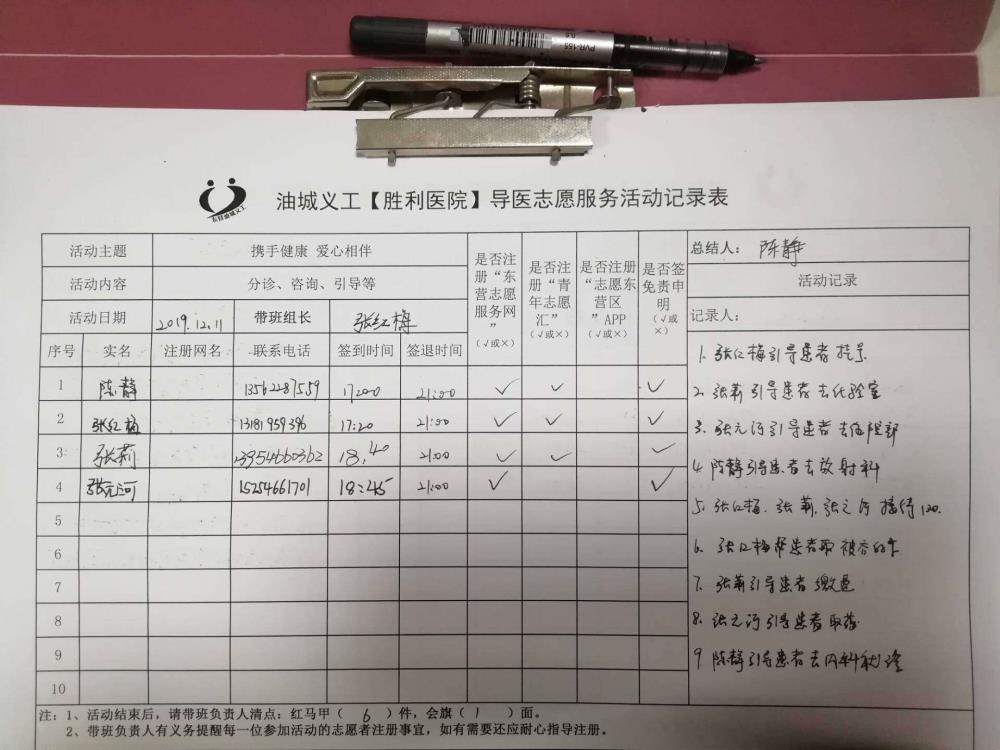 PVR-155
0.5
油城义工【胜利医院】导医志愿服务活动记录表
活动主题 携手健康 爱心相伴
活动内容 分诊、咨询、引导等
活动日期 2019.12.11 带班组长 张红梅
是否注册“东营志愿服务网” (√或×)
是否注册“青年志愿汇” (√或×)
是否注册“志愿东营区”APP (√或×)
是否签免责申明 (√或×)
总结人: 陈静
活动记录
记录人:
序号 实名 注册网名 联系电话 签到时间 签退时间
1 陈静 13562287559 17:00 21:00 √ √ √
2 张红梅 13181959396 17:20 21:00 √ √ √
3 张莉 13954660362 18:40 21:00 √ √ √
4 张元河 15254661701 18:45 21:00 √ √
5
6
7
8
9
10
1. 张红梅引导患者挂号
2. 张莉引导患者去化验室
3. 张元河引导患者去住院部
4. 陈静引导患者去放射科
5. 张红梅、张莉、张元河接待120.
6. 张红梅帮患者取
7. 张莉引导患者缴费
8. 张元河引导患者取药
9 陈静引导患者去内科就诊
注: 1、活动结束后,请带班负责人清点:红马甲( 6 )件,会旗( 1 )面。
2、带班负责人有义务提醒每一位参加活动的志愿者注册事宜,如有需要还应耐心指导注册。